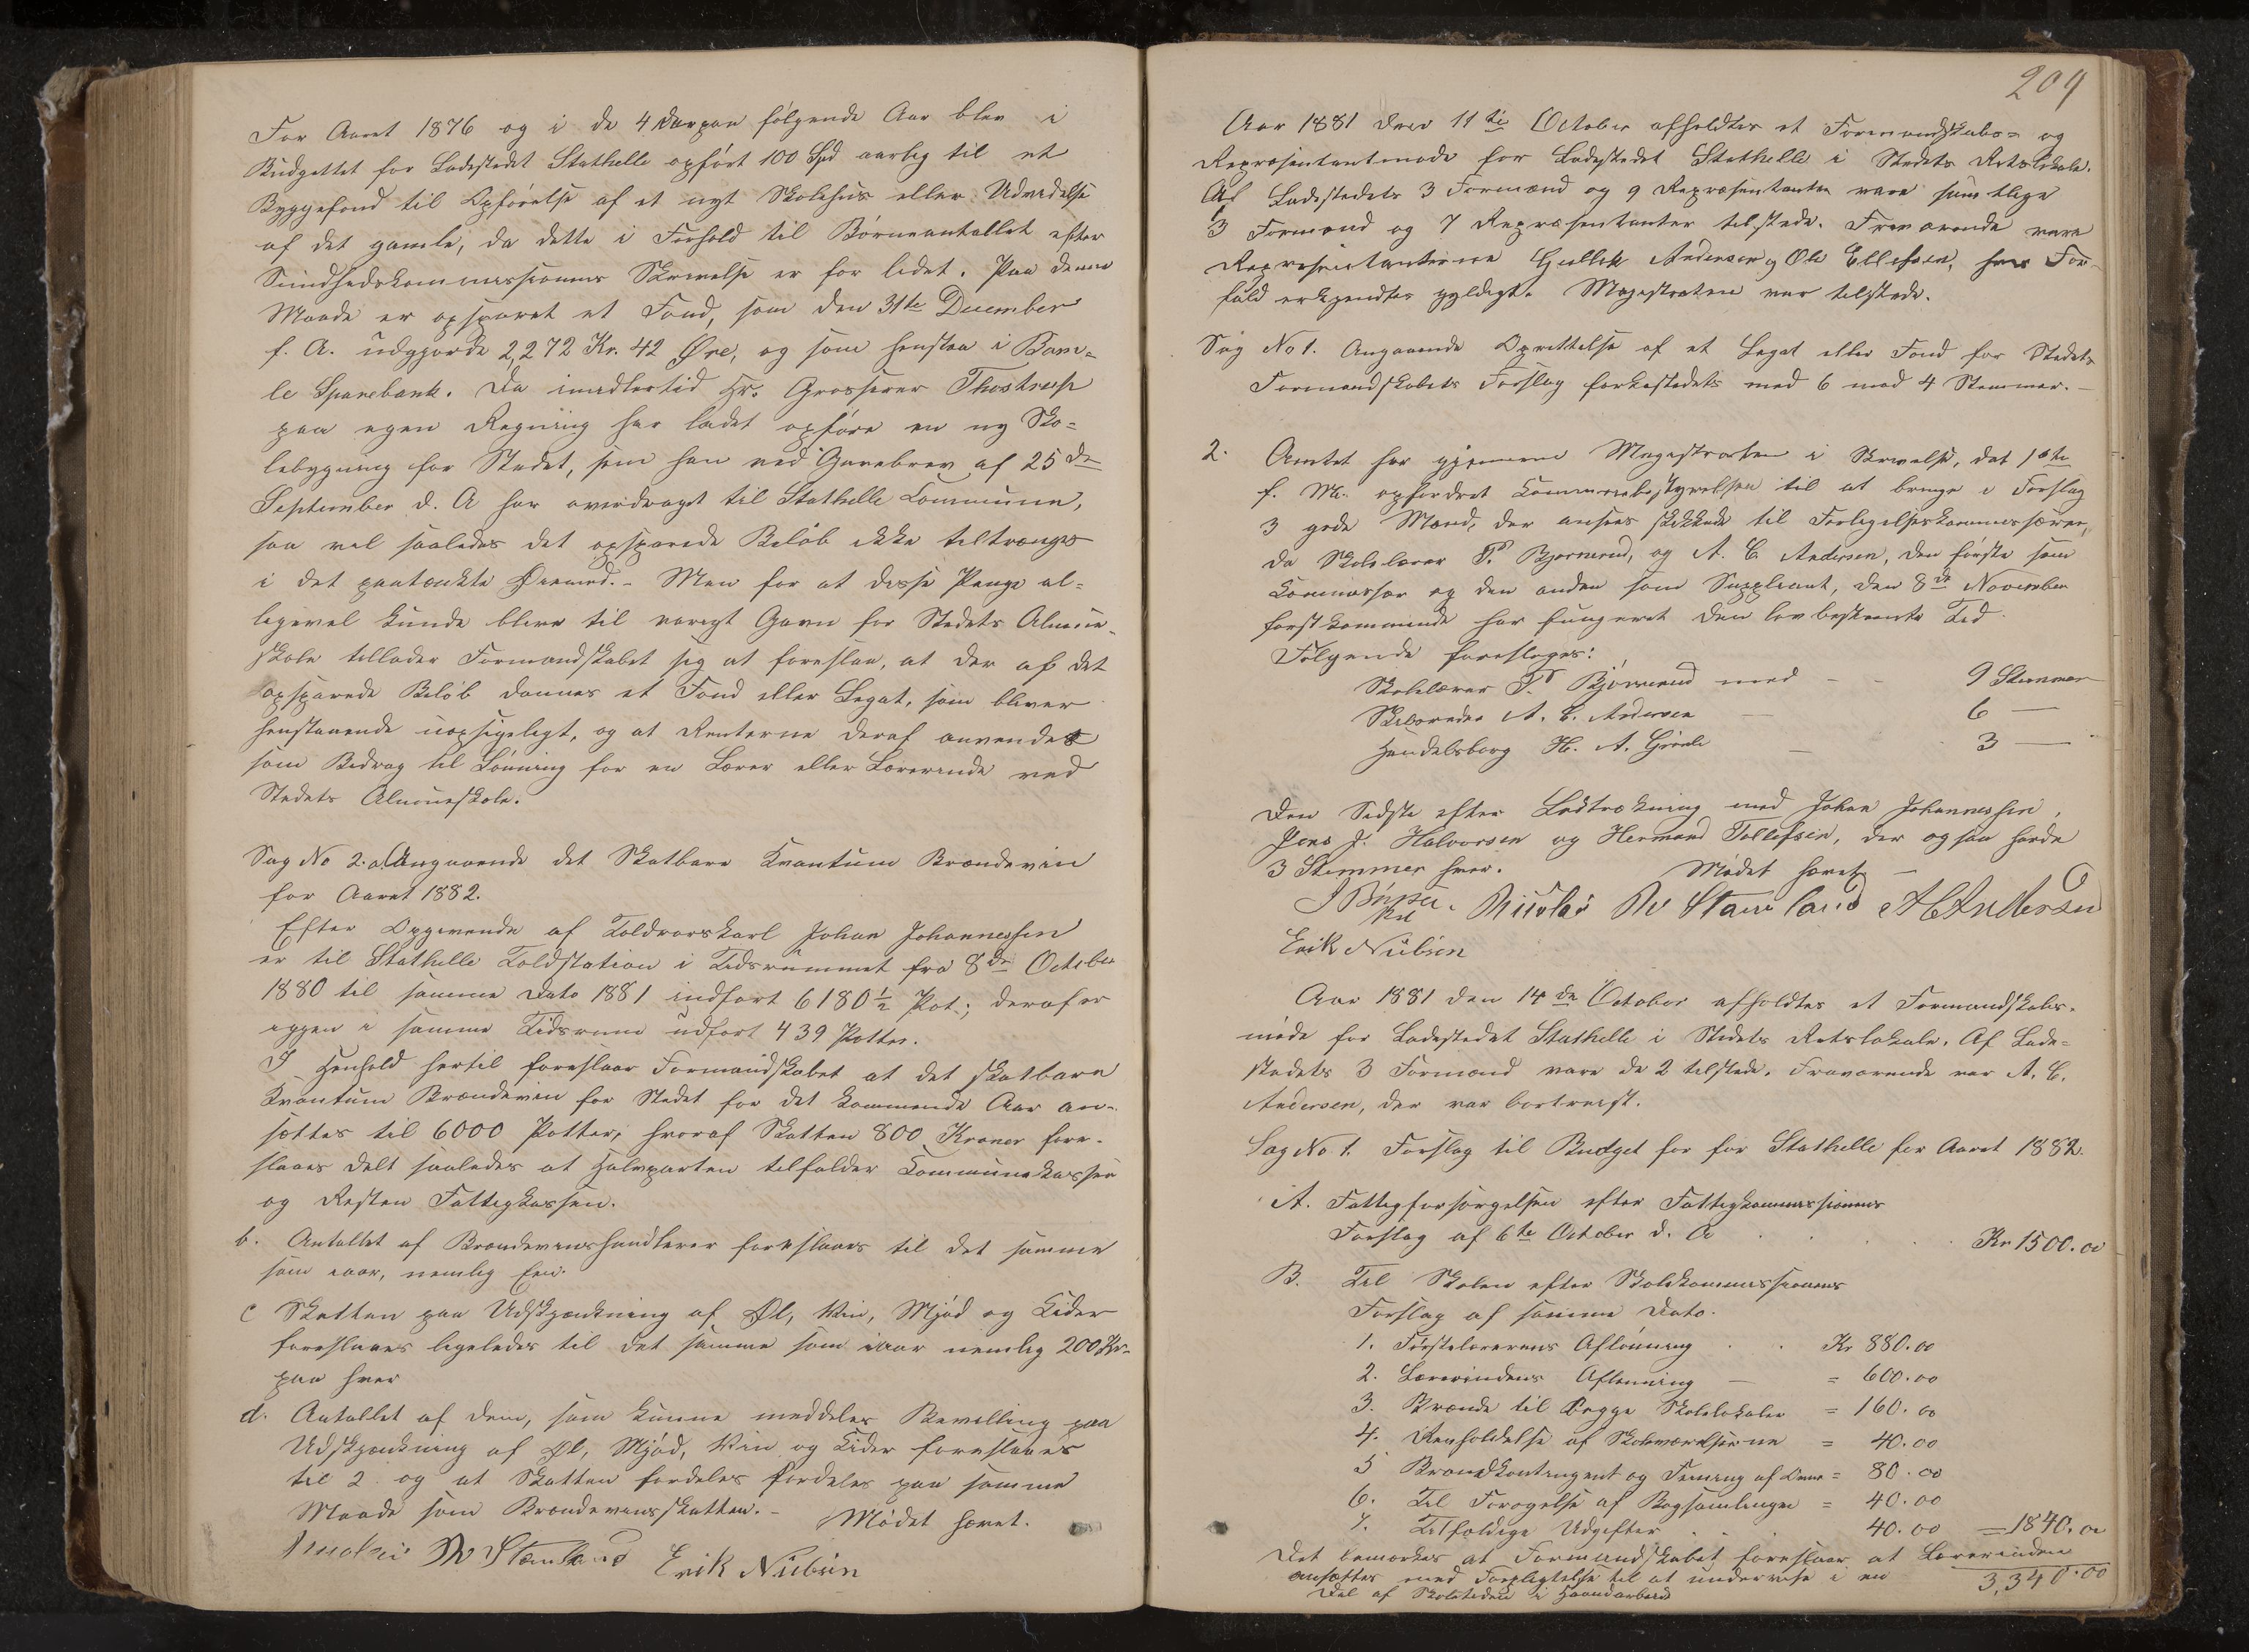 For Aaret 1876 og i de 4 derpaa følgende Aar blev i
Budgettet for Ladestedet Stathelle opført 100 Spd aarlig til et
Byggefond til Opførelse af et nyt Skolehus eller Udvidelse
af det gamle, da dette i Forhold til Børneantallet efter
Sundhedskommissionens Skrivelse er for lidet. Paa denne
Maade er opsparet et Fond, som den 31te December
f. A. udgjorde 2,272 Kr. 42 Øre, og som henstaa i Bam-
le Sparebank. Da imidlertid Hr. Grosserer Thostrup
paa egen Regning har ladet opføre en ny Sko-
lebygning for Stedet, som han ved Gavebrev af 25de
September d. A har overdraget til Stathelle Commune,
saa vel saaledes det opsparede Beløb ikke tiltrænges
i det paatænkte Øiemed. - Men for at disse Penge al-
ligevel kunde blive til varigt Gavn for Stedets Almue-
skole tillader Formandskabet sig at foreslaa, at der af det
opsparede Beløb dannes et Fond eller Legat, som bliver
henstaaende uopsigeligt, og at Renterne deraf anvendes
som Bidrag til Lønning for en Lærer eller Lærerinde ved
Stedets Almueskole.
Sag No 2. a. Angaaende det Skatbare Kvantum Brændevin
for Aaret 1882.
Efter Opgivende af Toldrorskarl Johan Johannessen
er til Stathelle Toldstation i Tidsrummet fra 8de October
1880 til samme Dato 1881 indført 6180 1/2 Pot.; deraf er
igjen i samme Tidsrum udført 439 Potter.
I Henhold hertil foreslaar Formandskabet at det skatbare
Kvantum Brændevin for Stedet for det kommende Aar an-
sættes til 6000 Potter, hvoraf Skatten 800 Kroner fore-
slaaes delt saaledes at Halvparten tilfalder Communekassen
og Resten Fattigkassen.
b. Antallet af Brændevinshandlere foreslaaes til det samme
som iaar, nemlig Een.
c Skatten paa Udskjænkning af Øl, Vin, Mjød og Cider
foreslaaes ligeledes til det samme som iaar nemlig 200 Kr.
paa hver
d. Antallet af dem, som kunne meddeles Bevilling paa
Udskjænkning af Øl, Mjød, Vin og Cider foreslaaes
til 2 og at Skatten fordeles fordeles paa samme
Maade som Brændevinsskatten. - Mødet hævet.
Erik Nielsen
209
Aar 1881 den 11te October afholdtes et Formandskabs- og
Repræsentantmøde for Ladestedet Stathelle i Stedets Retslokale.
Af Ladestedets 3 Formænd og 9 Repræsentanter vare samtlige
3 Formænd og 7 Repræsentanter tilstede. Fraværende vare
Repræsentanterne Gullik Andersen og Ole Ellefsen, hvis For-
fald erkjendtes gyldigt. Magistraten var tilstede.
Sag No 1. Angaaende Oprettelse af et Legat eller Fond for Stedets
Formandskabets Forslag forkastedes med 6 mod 4 Stemmer. -
2. Amtet har gjennem Magistraten i Skrivelse, dat 16te
f. M. opfordret Kommunebestyrelsen til at bringe i Forslag
3 gode Mænd, der ansees skikkede til Forligelseskommissærer,
da Skolelærer Ts Bjørnerud, og A. C. Andersen, den første som
Kommissær og den anden som Suppleant, den 8de November
førstkommende har fungeret den lovbestemte Tid.
Følgende foresloges:
Skolelærer Ts Bjørnerud med - - 9 Stemmer
Skibsreder A. C. Andersen — 6 —
Handelsborg H. A. Grønli — 3 —
Den Sidste efter Lodtrækning med Johan Johannessen,
Jens J. Halvorsen og Hermand Tollefsen, der ogsaa havde
3 Stemmer hver. Mødet hævet —
A C Andersen
Erik Nielsen
Aar 1881 den 14de October afholdtes et Formandskabs-
møde for Ladestedet Stathelle i Stedets Retslokale. Af Lade-
stedets 3 Formænd vare de 2 tilstede. Fraværende var A. C.
Andersen, der var bortreist.
Sag No 1. Forslag til Budget for for Stathelle for Aaret 1882.
A. Fattigforsørgelsen efter Fattigkommissionens
Forslag af 6te October d. A . . . . Kr 1500.00
B. Til Skolen efter Skolekommissionens
Forslag af samme Dato.
1. Førstelærerens Aflønning . . Kr 880.00
2. Lærerindens Aflønning — = 600.00
3. Brænde til begge Skolelokaler = 160.00
4. Renholdelse af Skoleværelserne = 40.00
5 Brandkontingent og Feining af Ovne = 80.00
6. Til Forøgelse af Bogsamlingen = 40.00
7. Tilfældige Udgifter . . 40.00 = 1840.00
Det bemærkes at Formandskabet foreslaar at Lærerinden
ansættes med Forpligtelse til at undervise i en 3,340.00
Del af Skoletiden i Haandarbeide